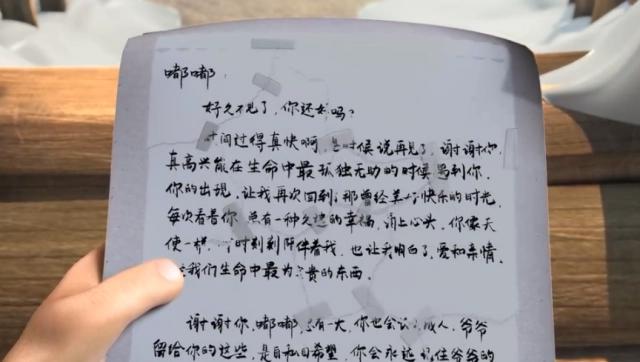 嘟嘟:
好久不见了,你还好吗?
时间过得真快啊,是时候说再见了,谢谢你,
真高兴能在生命中最孤独无助的时候遇到你,
你的出现,让我再次回到了那曾经美好快乐的时光,
每次看着你,总有一种久违的幸福,涌上心头,你像天
使一样,时时刻刻陪伴着我,也让我明白了,爱和亲情,
我们生命中最为宝贵的东西。
谢谢你,嘟嘟,总有一天,你也会长大成人,爷爷
留给你的这些,是自私的希望,你会永远记住爷爷的